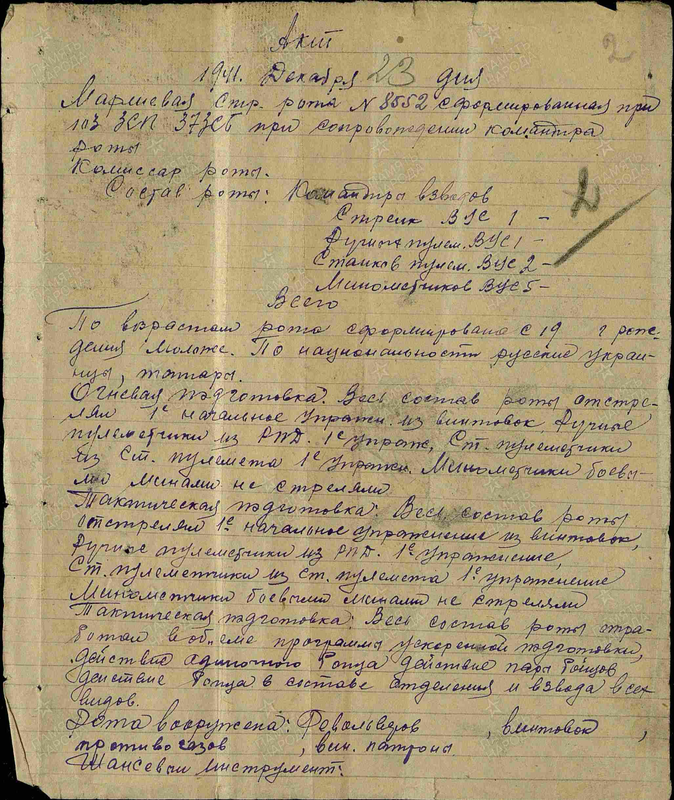 Акт
2
1941. Декабря 23 дня
Маршевая стр. рота № 8552 сформированная при
103 ЗСП 37ЗСБ при сопровождении командира
роты
Комиссар роты.
Состав роты: Командиры взводов
Стрелк ВУС 1 -
Ручных пулем. ВУС 1 -
Станков пулем. ВУС 2 -
Минометчиков ВУС 5 -
Всего
По возрастам рота сформирована с 19 г рож-
дения моложе. По национальности русские украи-
нцы, татары.
Огневая подготовка. Весь состав роты отстре-
лял 1е начальное упражн. из винтовок, Ручные
пулеметчики из РПД. 1е упраж, Ст. пулеметчики
из Ст. пулемета 1е упражн. Минометчики боевы-
ми минами не стреляли
Тактическая подготовка: Весь состав роты
отстрелял 1е начальное упражнение из винтовок,
Ручные пулеметчики из РПД. 1е упражнение,
Ст. пулеметчики из ст. пулемета 1е упражнение
Минометчики боевыми минами не стреляли
Тактическая подготовка: Весь состав роты отра-
ботал в объеме программы ускоренной подготовки,
действие одиночного бойца действие пары бойцов
действие бойца в составе отделения и взвода всех
видов.
Рота вооружена: Револьверов , винтовок ,
противогазов , вин. патроны
Шансевый инструмент: